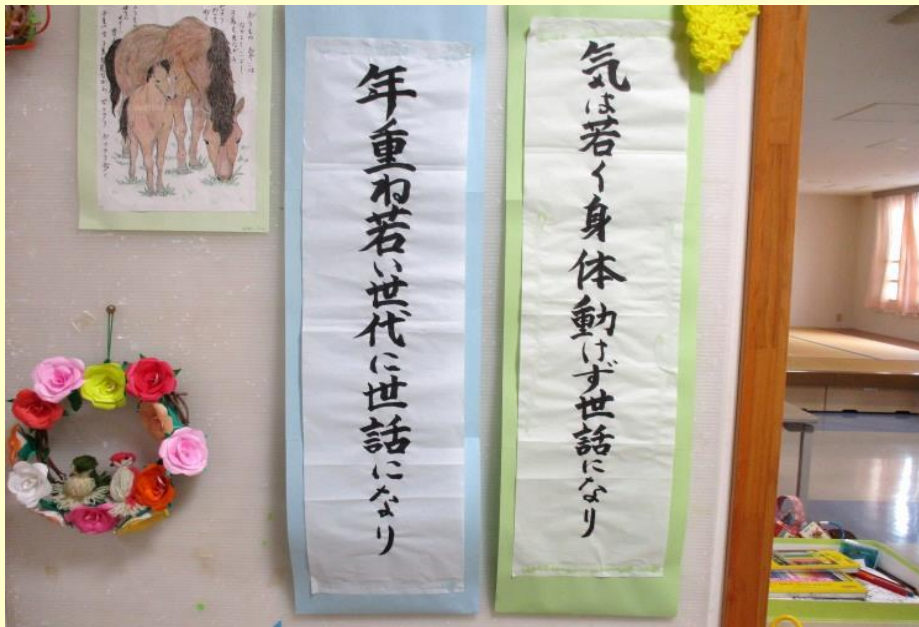 気は若く身体動けず世話になり
年重ね若い世代に世話になり